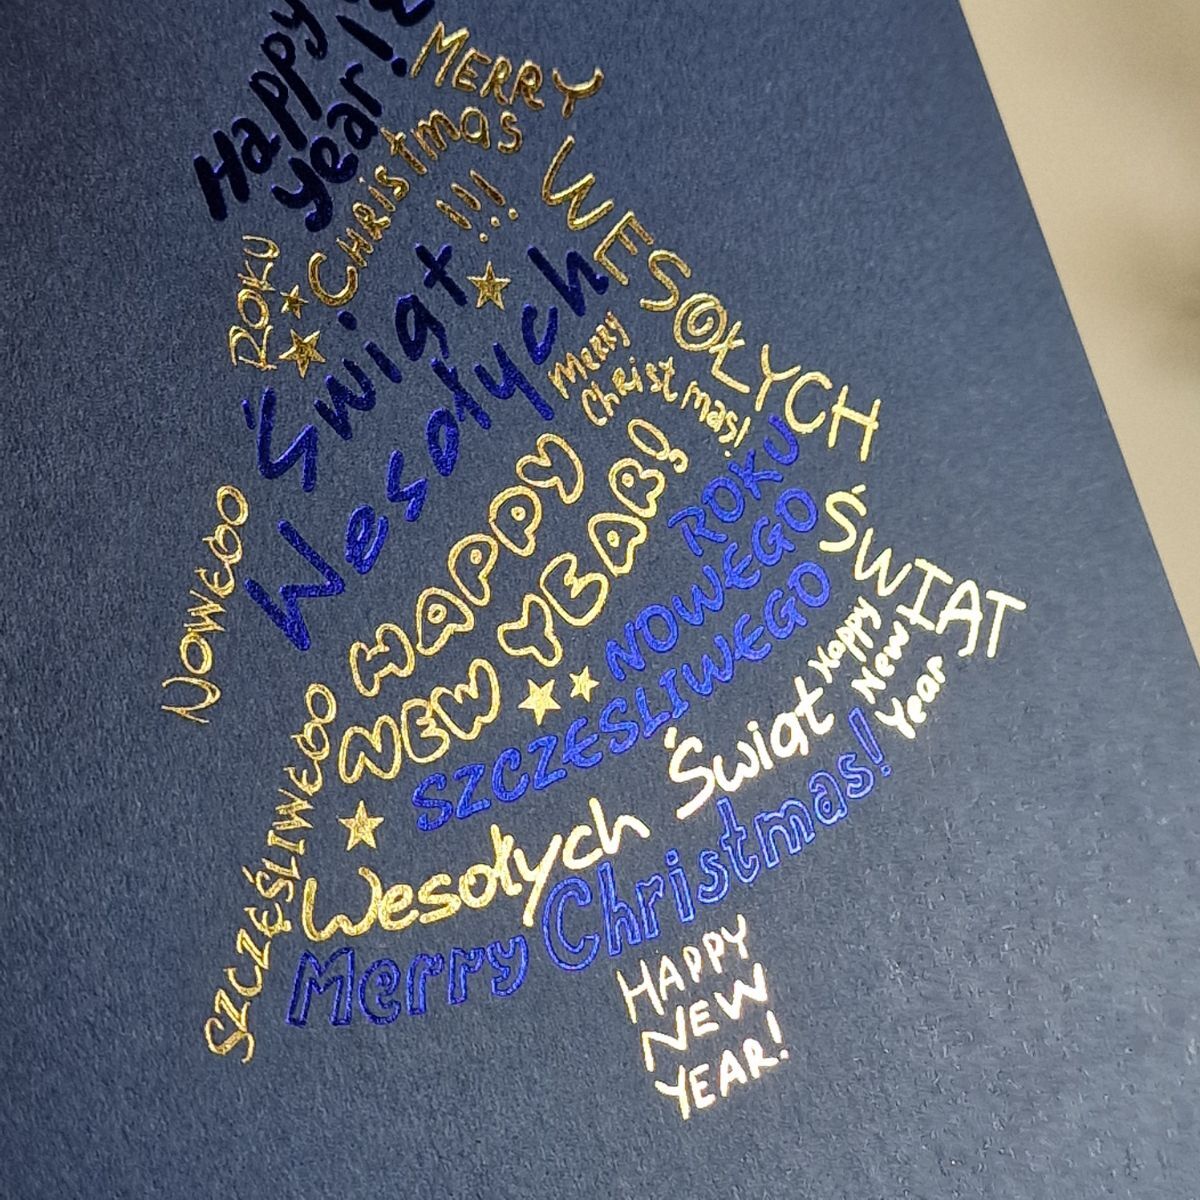 Happy
year!
MERRY
Christmas
!!!
WESOŁYCH
ŚWIĄT
ROKU
NOWEGO
SZCZĘŚLIWEGO
Świąt
Wesołych
Merry
Christmas!
HAPPY
NEW YEAR!
ROKU
NOWEGO
SZCZĘŚLIWEGO
Happy
New
Year
Wesołych Świąt
Merry Christmas!
HAPPY
NEW
YEAR!